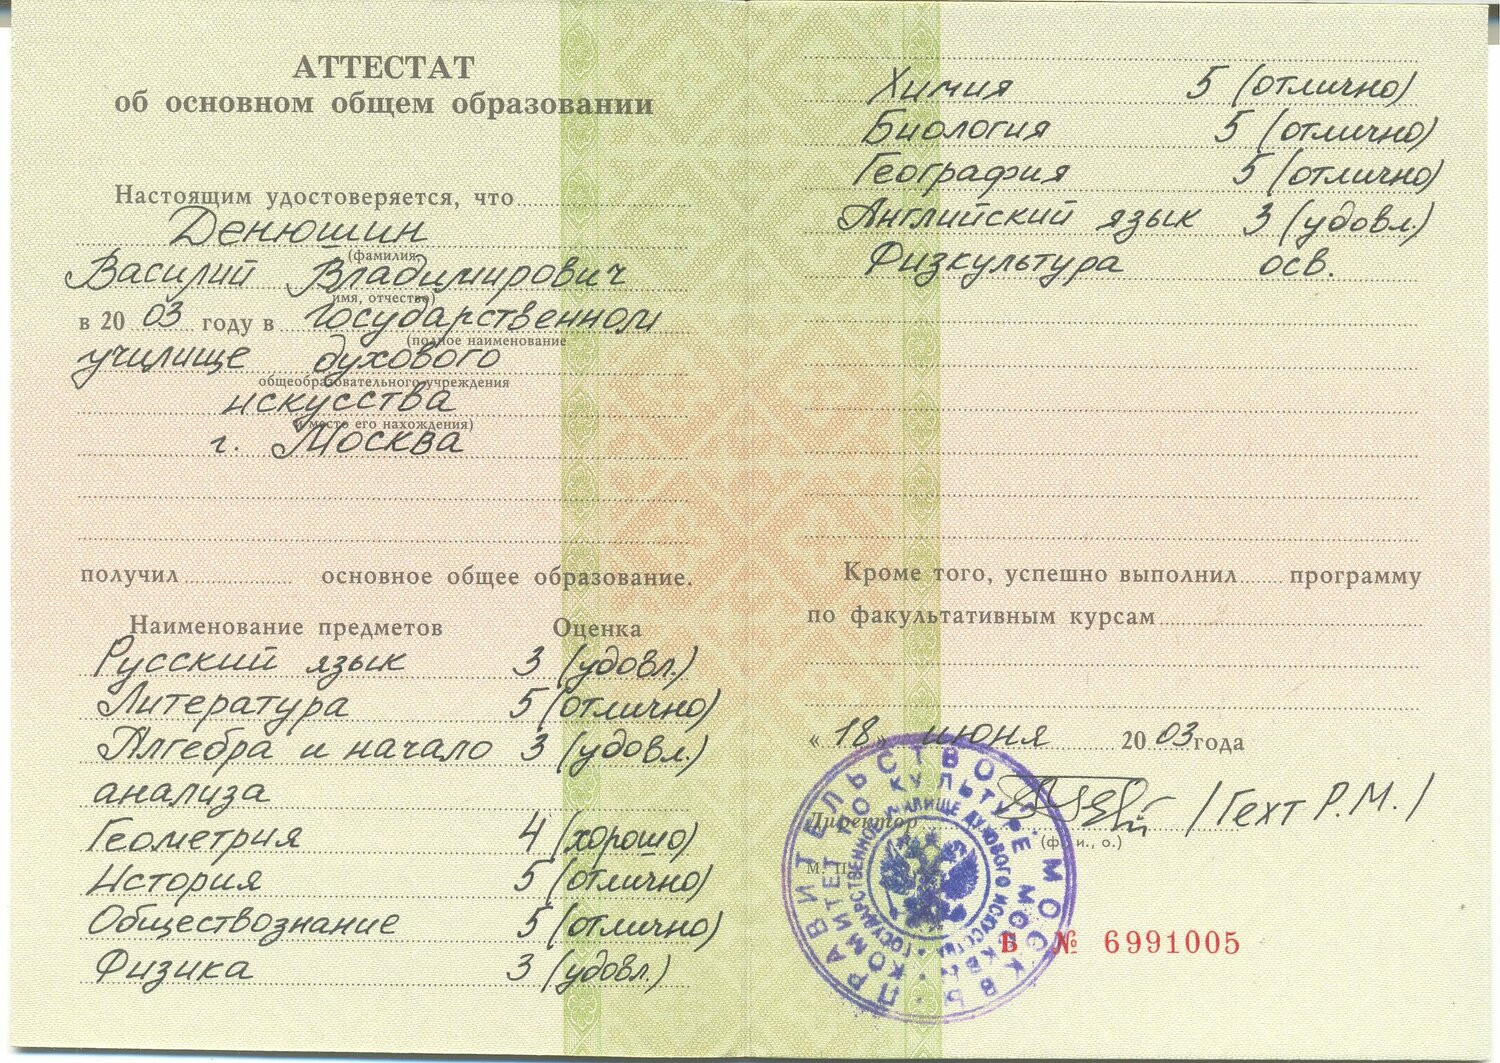 АТТЕСТАТ
об основном общем образовании
Настоящим удостоверяется, что
Денюшин
(фамилия)
Василий Владимирович
имя, отчество)
в 20 03 году в Государственном
(полное наименование
училище духового
общеобразовательного учреждения
искусства
и место его нахождения)
г. Москва
получил основное общее образование.
Наименование предметов Оценка
Русский язык 3 (удовл.)
Литература 5 (отлично)
Алгебра и начало 3 (удовл.)
анализа
Геометрия 4 (хорошо)
История 5 (отлично)
Обществознание 5 (отлично)
Физика 3 (удовл.)
Химия 5 (отлично)
Биология 5 (отлично)
География 5 (отлично)
Английский язык 3 (удовл.)
Физкультура осв.
Кроме того, успешно выполнил программу
по факультативным курсам
«18» июня 20 03 года
Директор /Гехт Р.М./
(ф., и., о.)
М. П.
ПРАВИТЕЛЬСТВО МОСКВЫ
КОМИТЕТ ПО КУЛЬТУРЕ МОСКВЫ
ГОСУДАРСТВЕННОЕ УЧИЛИЩЕ ДУХОВОГО ИСКУССТВА
Б № 6991005